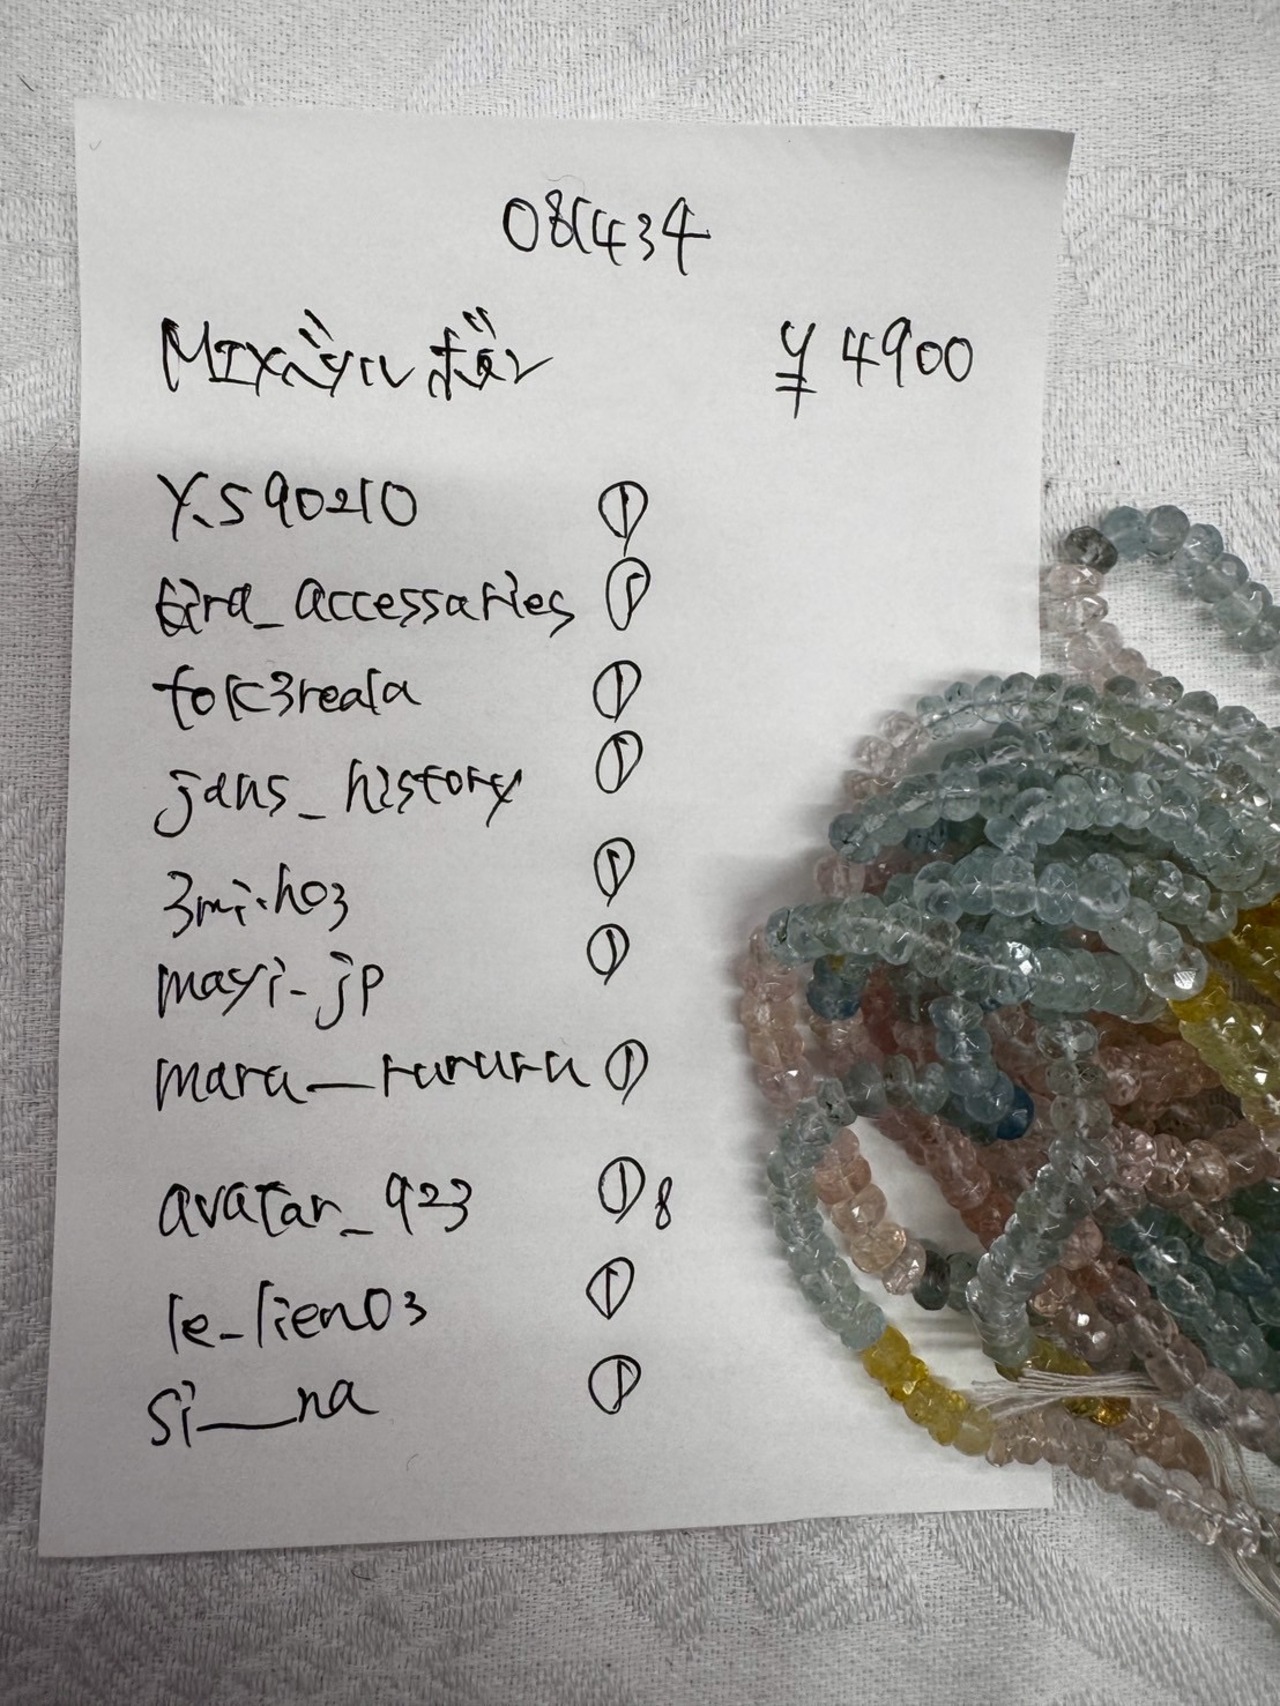 081434
MIXベリルボタン ¥4900
Y.S90210 ①
tira_accessaries ①
folk3reala ①
jans_history ①
3mi.ho3 ①
mayi-jp ①
mara_rururu ①
avatar_923 ①8
le_lien03 ①
si__na ①